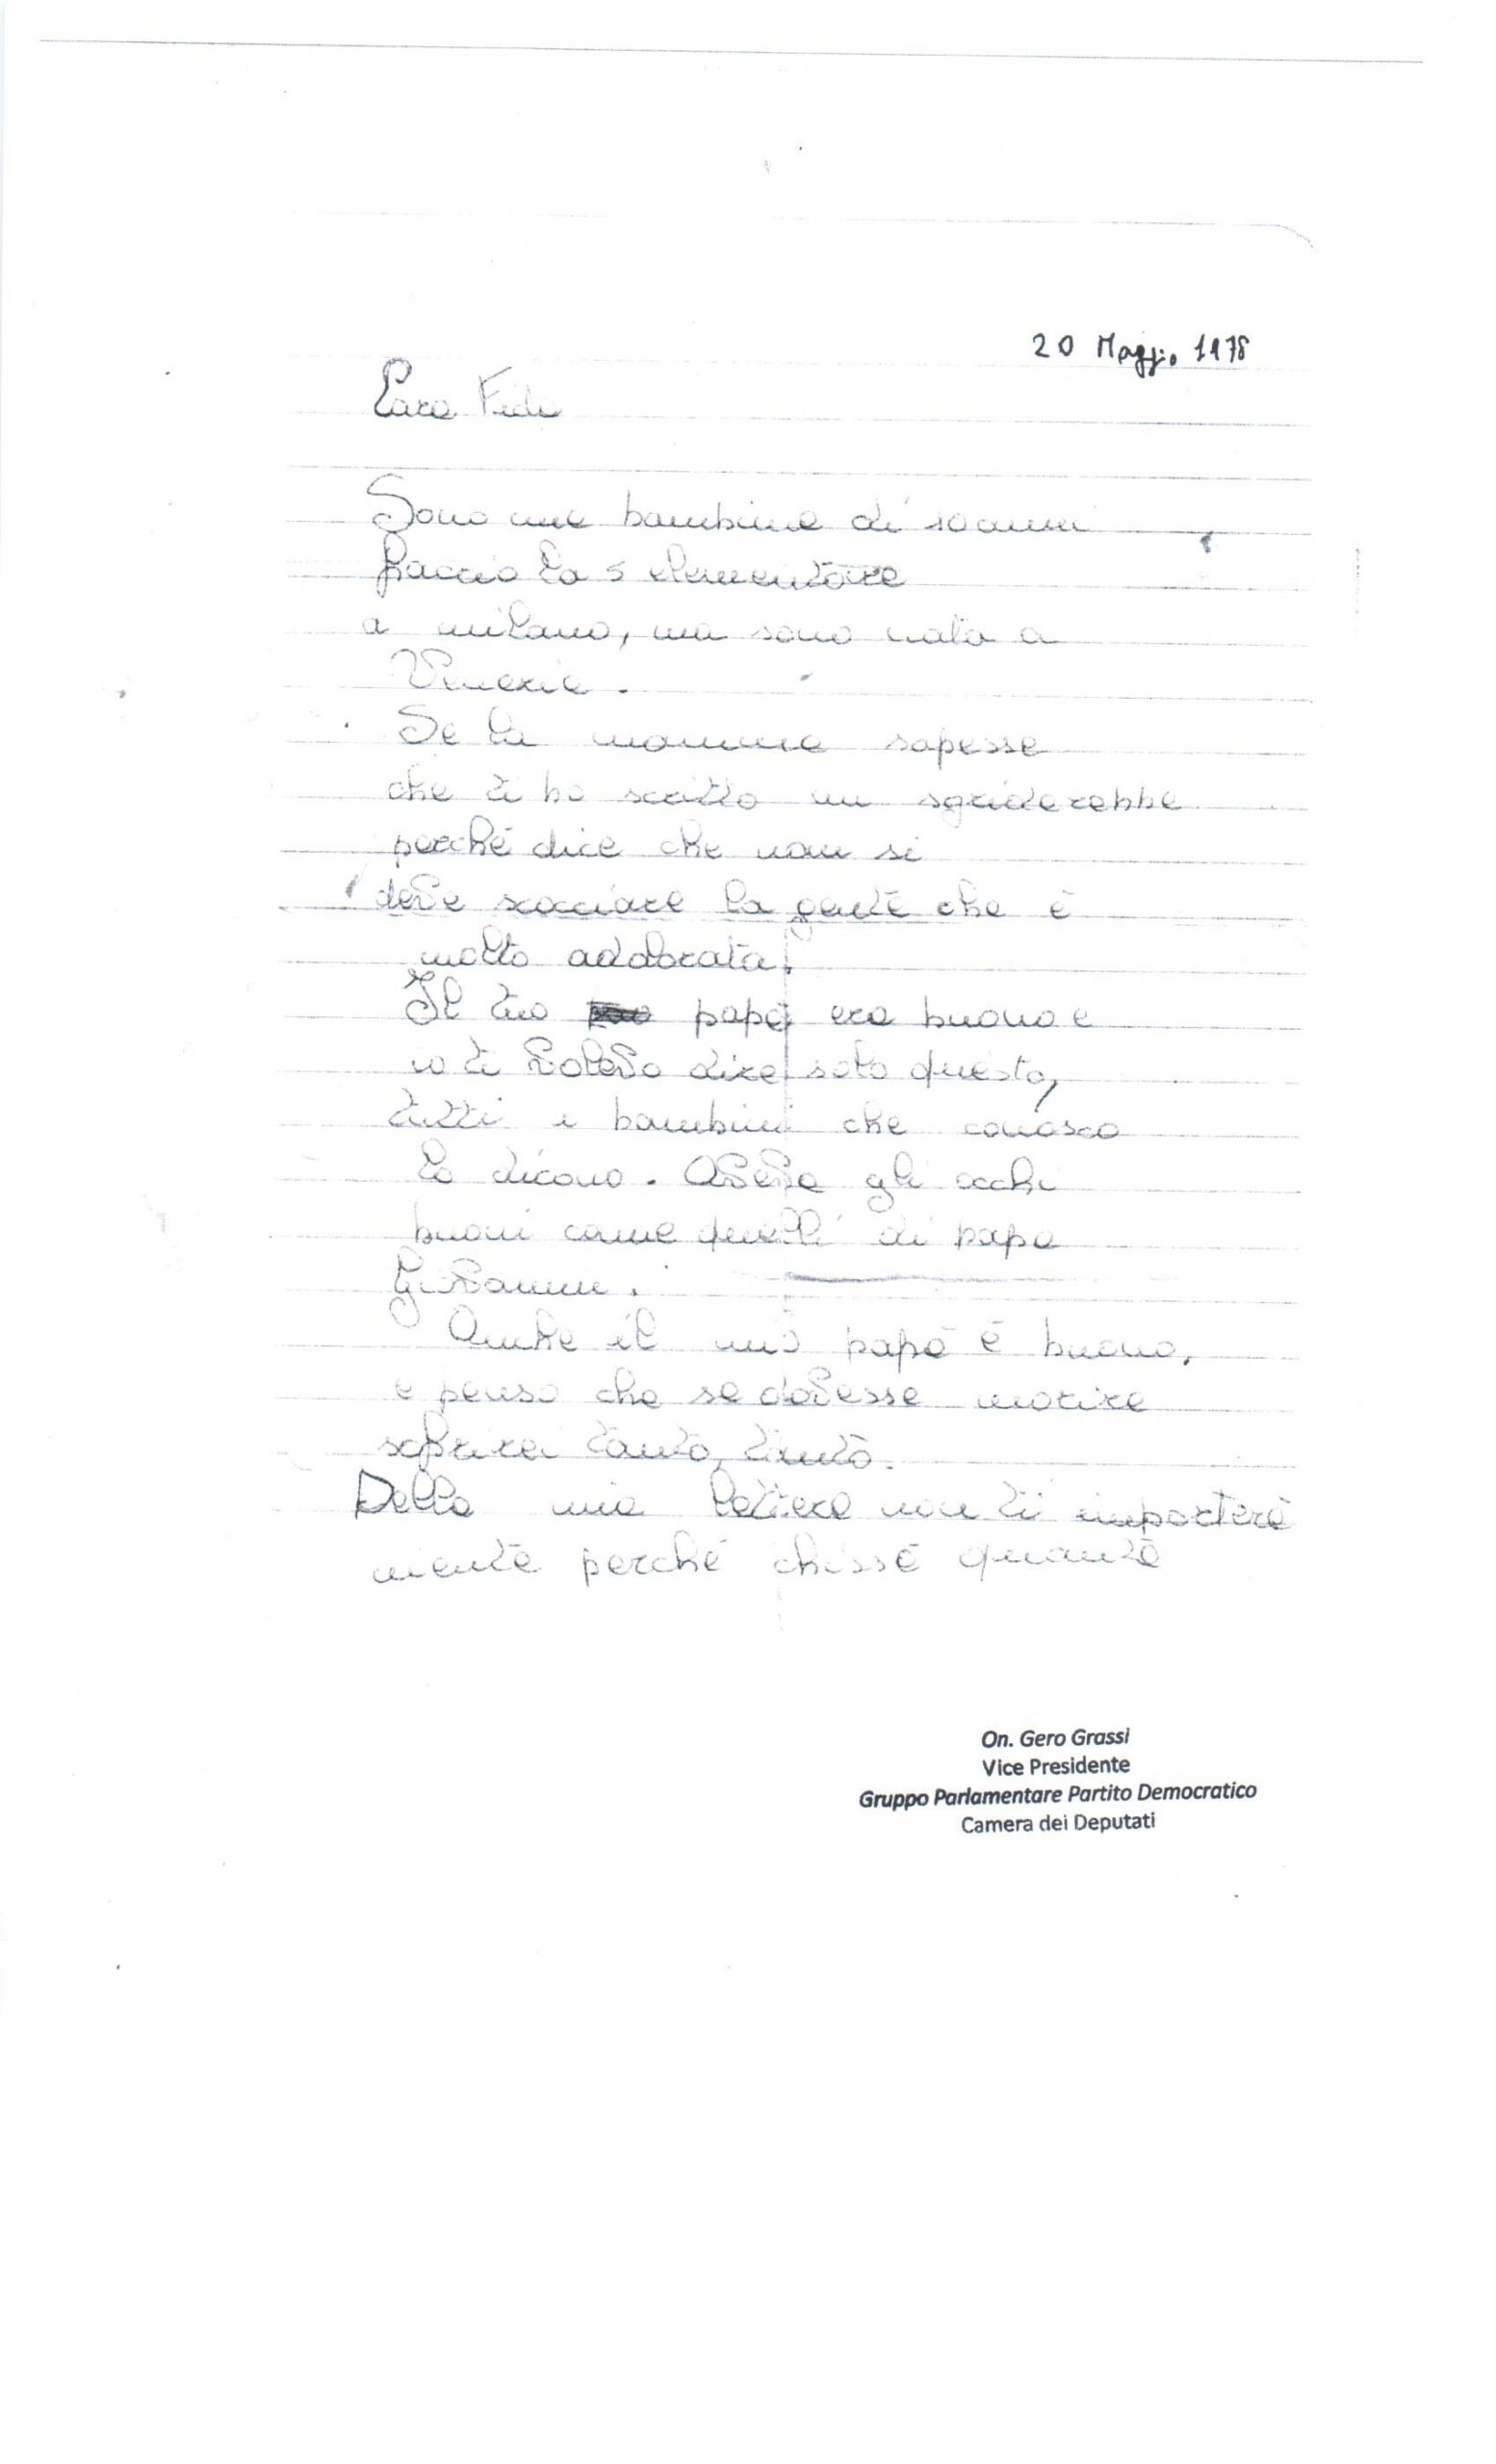 20 Maggio 1978
Cara Fida
Sono una bambina di 10 anni
faccio la 5 elementare
a milano, ma sono nata a
Venezia.
Se la mamma sapesse
che ti ho scritto mi sgriderebbe
perché dice che non si
deve scocciare la gente che è
molto addolorata.
Il tuo papà era buono e
io ti volevo dire solo questo,
tutti i bambini che conosco
lo dicono. Aveva gli occhi
buoni come quelli di papa
Giovanni.
Anche il mio papà è buono,
e penso che se dovesse morire
soffrirei tanto, tanto.
Della mia lettera non ti importerà
niente perché chissà quante
On. Gero Grassi
Vice Presidente
Gruppo Parlamentare Partito Democratico
Camera dei Deputati